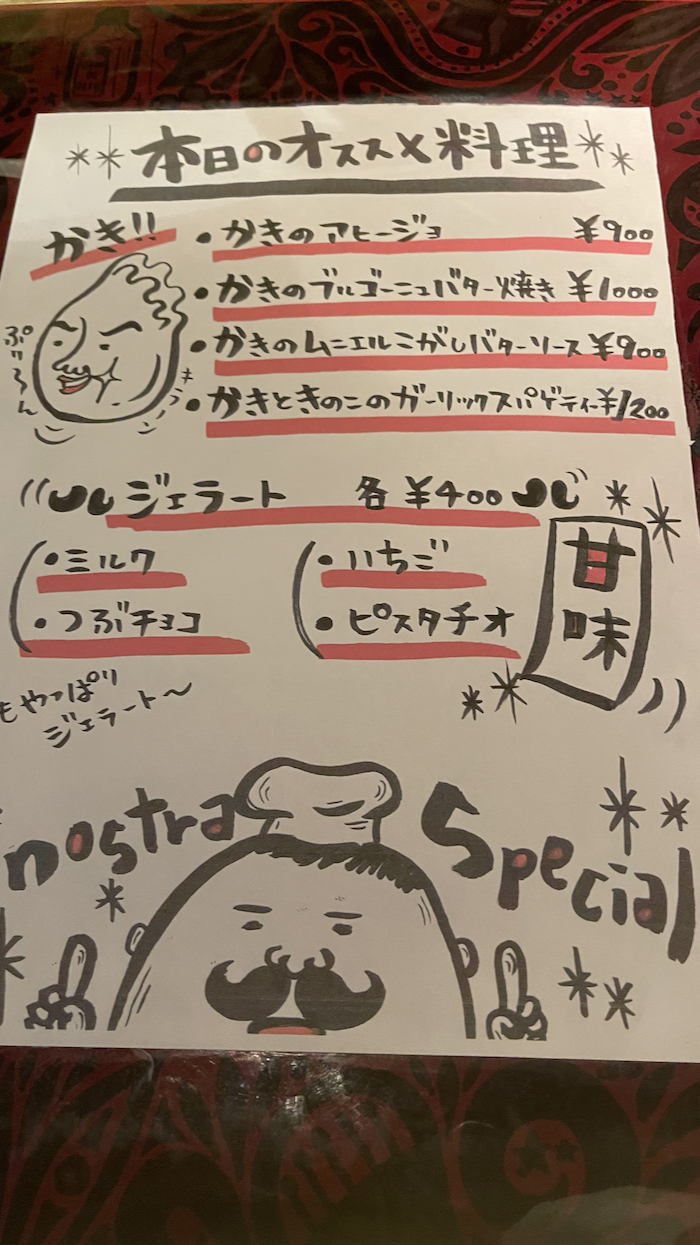 本日のオススメ料理
かき!!
・かきのアヒージョ ¥900
・かきのブルゴーニュバター焼き ¥1000
・かきのムニエルこがしバターソース ¥900
・かきときのこのガーリックスパゲティー ¥1200
ぷりろん
ジェラート 各 ¥400
・ミルク
・つぶチョコ
・いちご
・ピスタチオ
甘味
もやっぱり
ジェラート〜
nostra Special